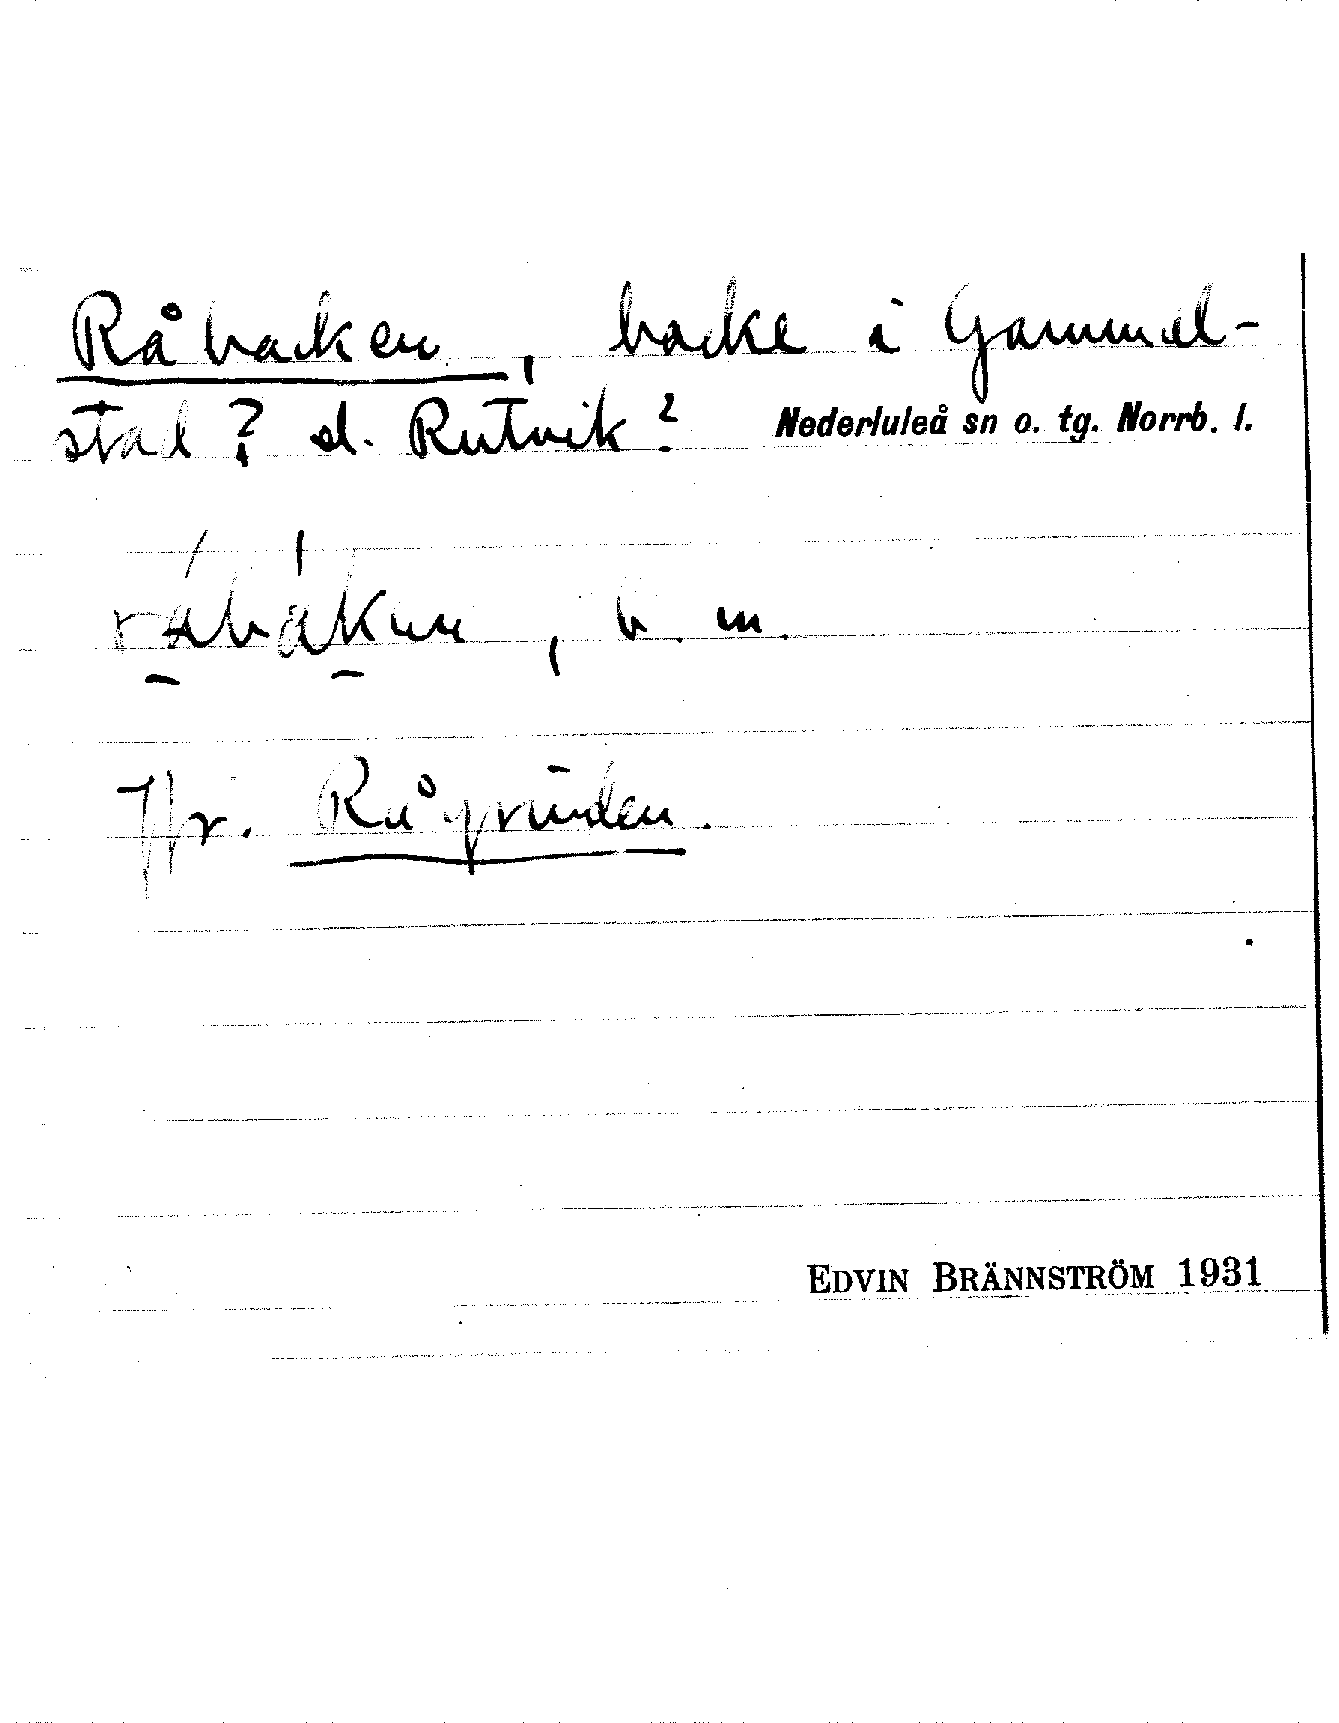 Råbacken, backe i Gammel-
stad? el. Rutvik? Nederluleå sn o. tg. Norrb. l.
råbákæn, b. m.
Jfr. Rågrunden.
EDVIN BRÄNNSTRÖM 1931